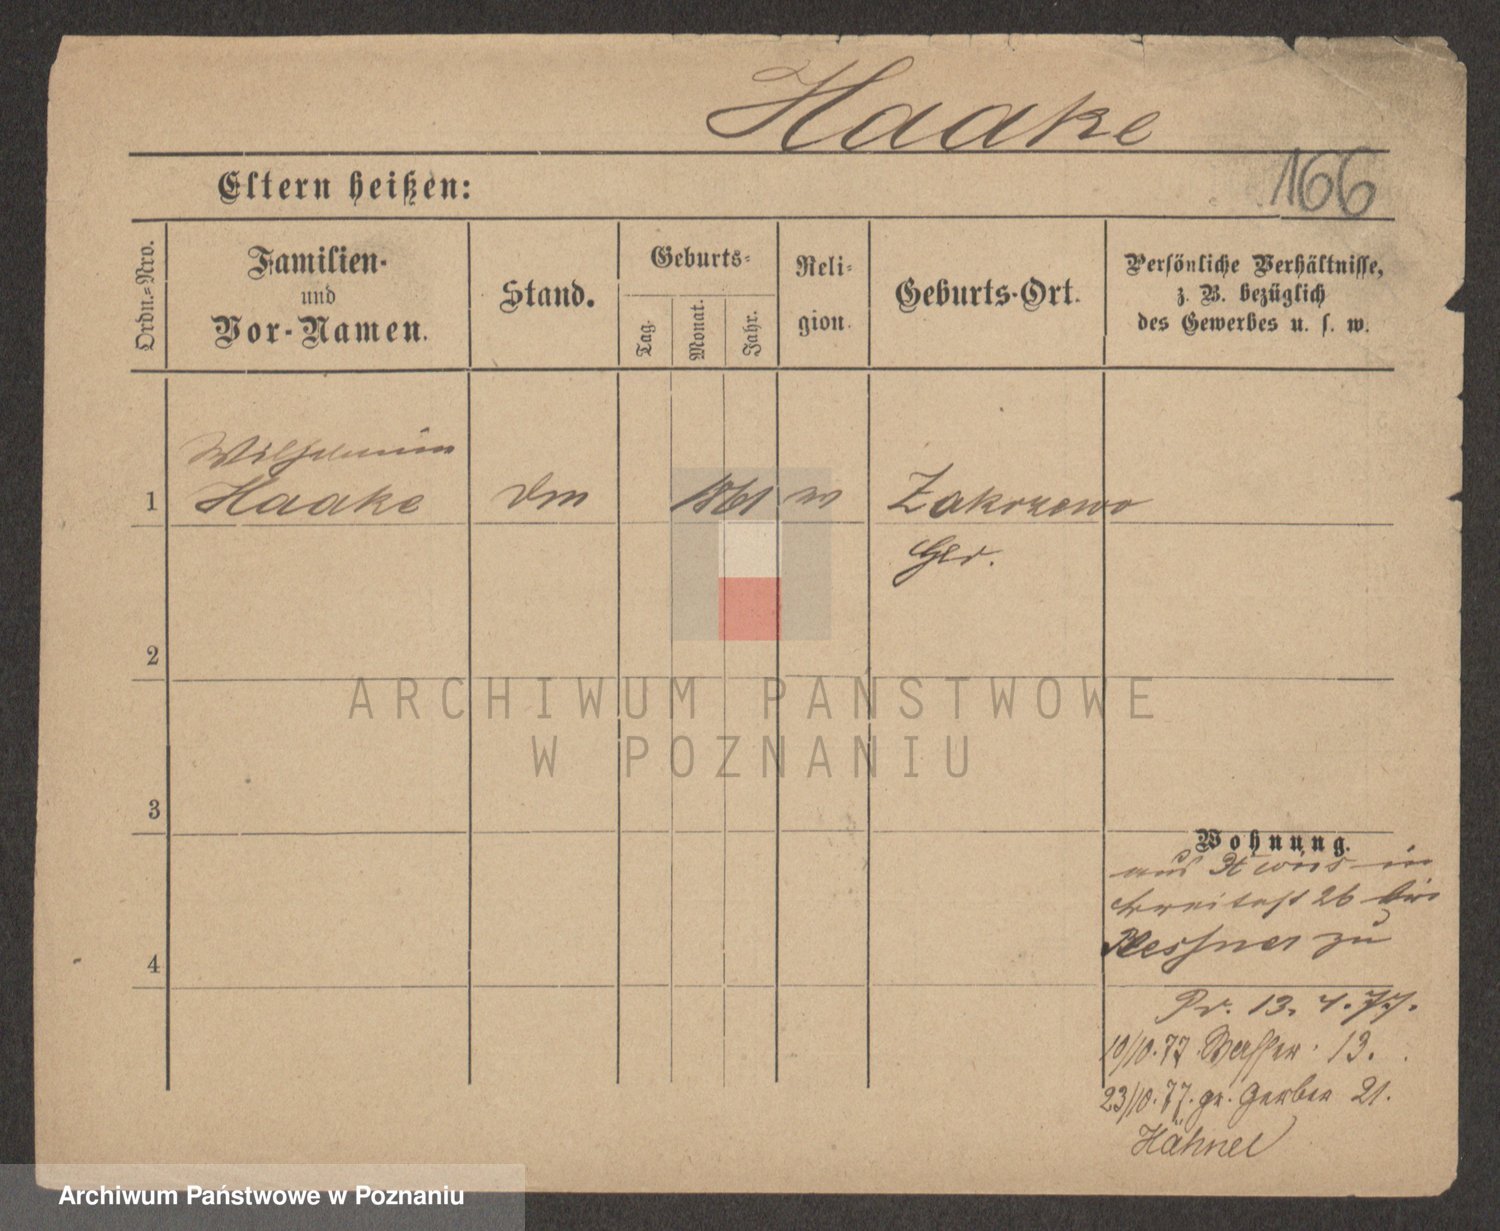 Haake
166
Eltern heißen:
Ordn.=Nro.
Familien-
und
Vor-Namen.
Stand.
Geburts=
Tag.
Monat.
Jahr.
Reli=
gion.
Geburts-Ort.
Persönliche Verhältnisse,
z. B. bezüglich
des Gewerbes u. s. w.
Wilhelmine
1 Haake 1861 Zakrzewo
2
ARCHIWUM PAŃSTWOWE
W POZNANIU
3
Wohnung.
aus in
Breitestr 26 bei
4 Messner zu
Pr. 13. 4. 77.
10/10. 77 Wasser 13.
23/10. 77. gr. Gerber 21.
Hähnel
Archiwum Państwowe w Poznaniu